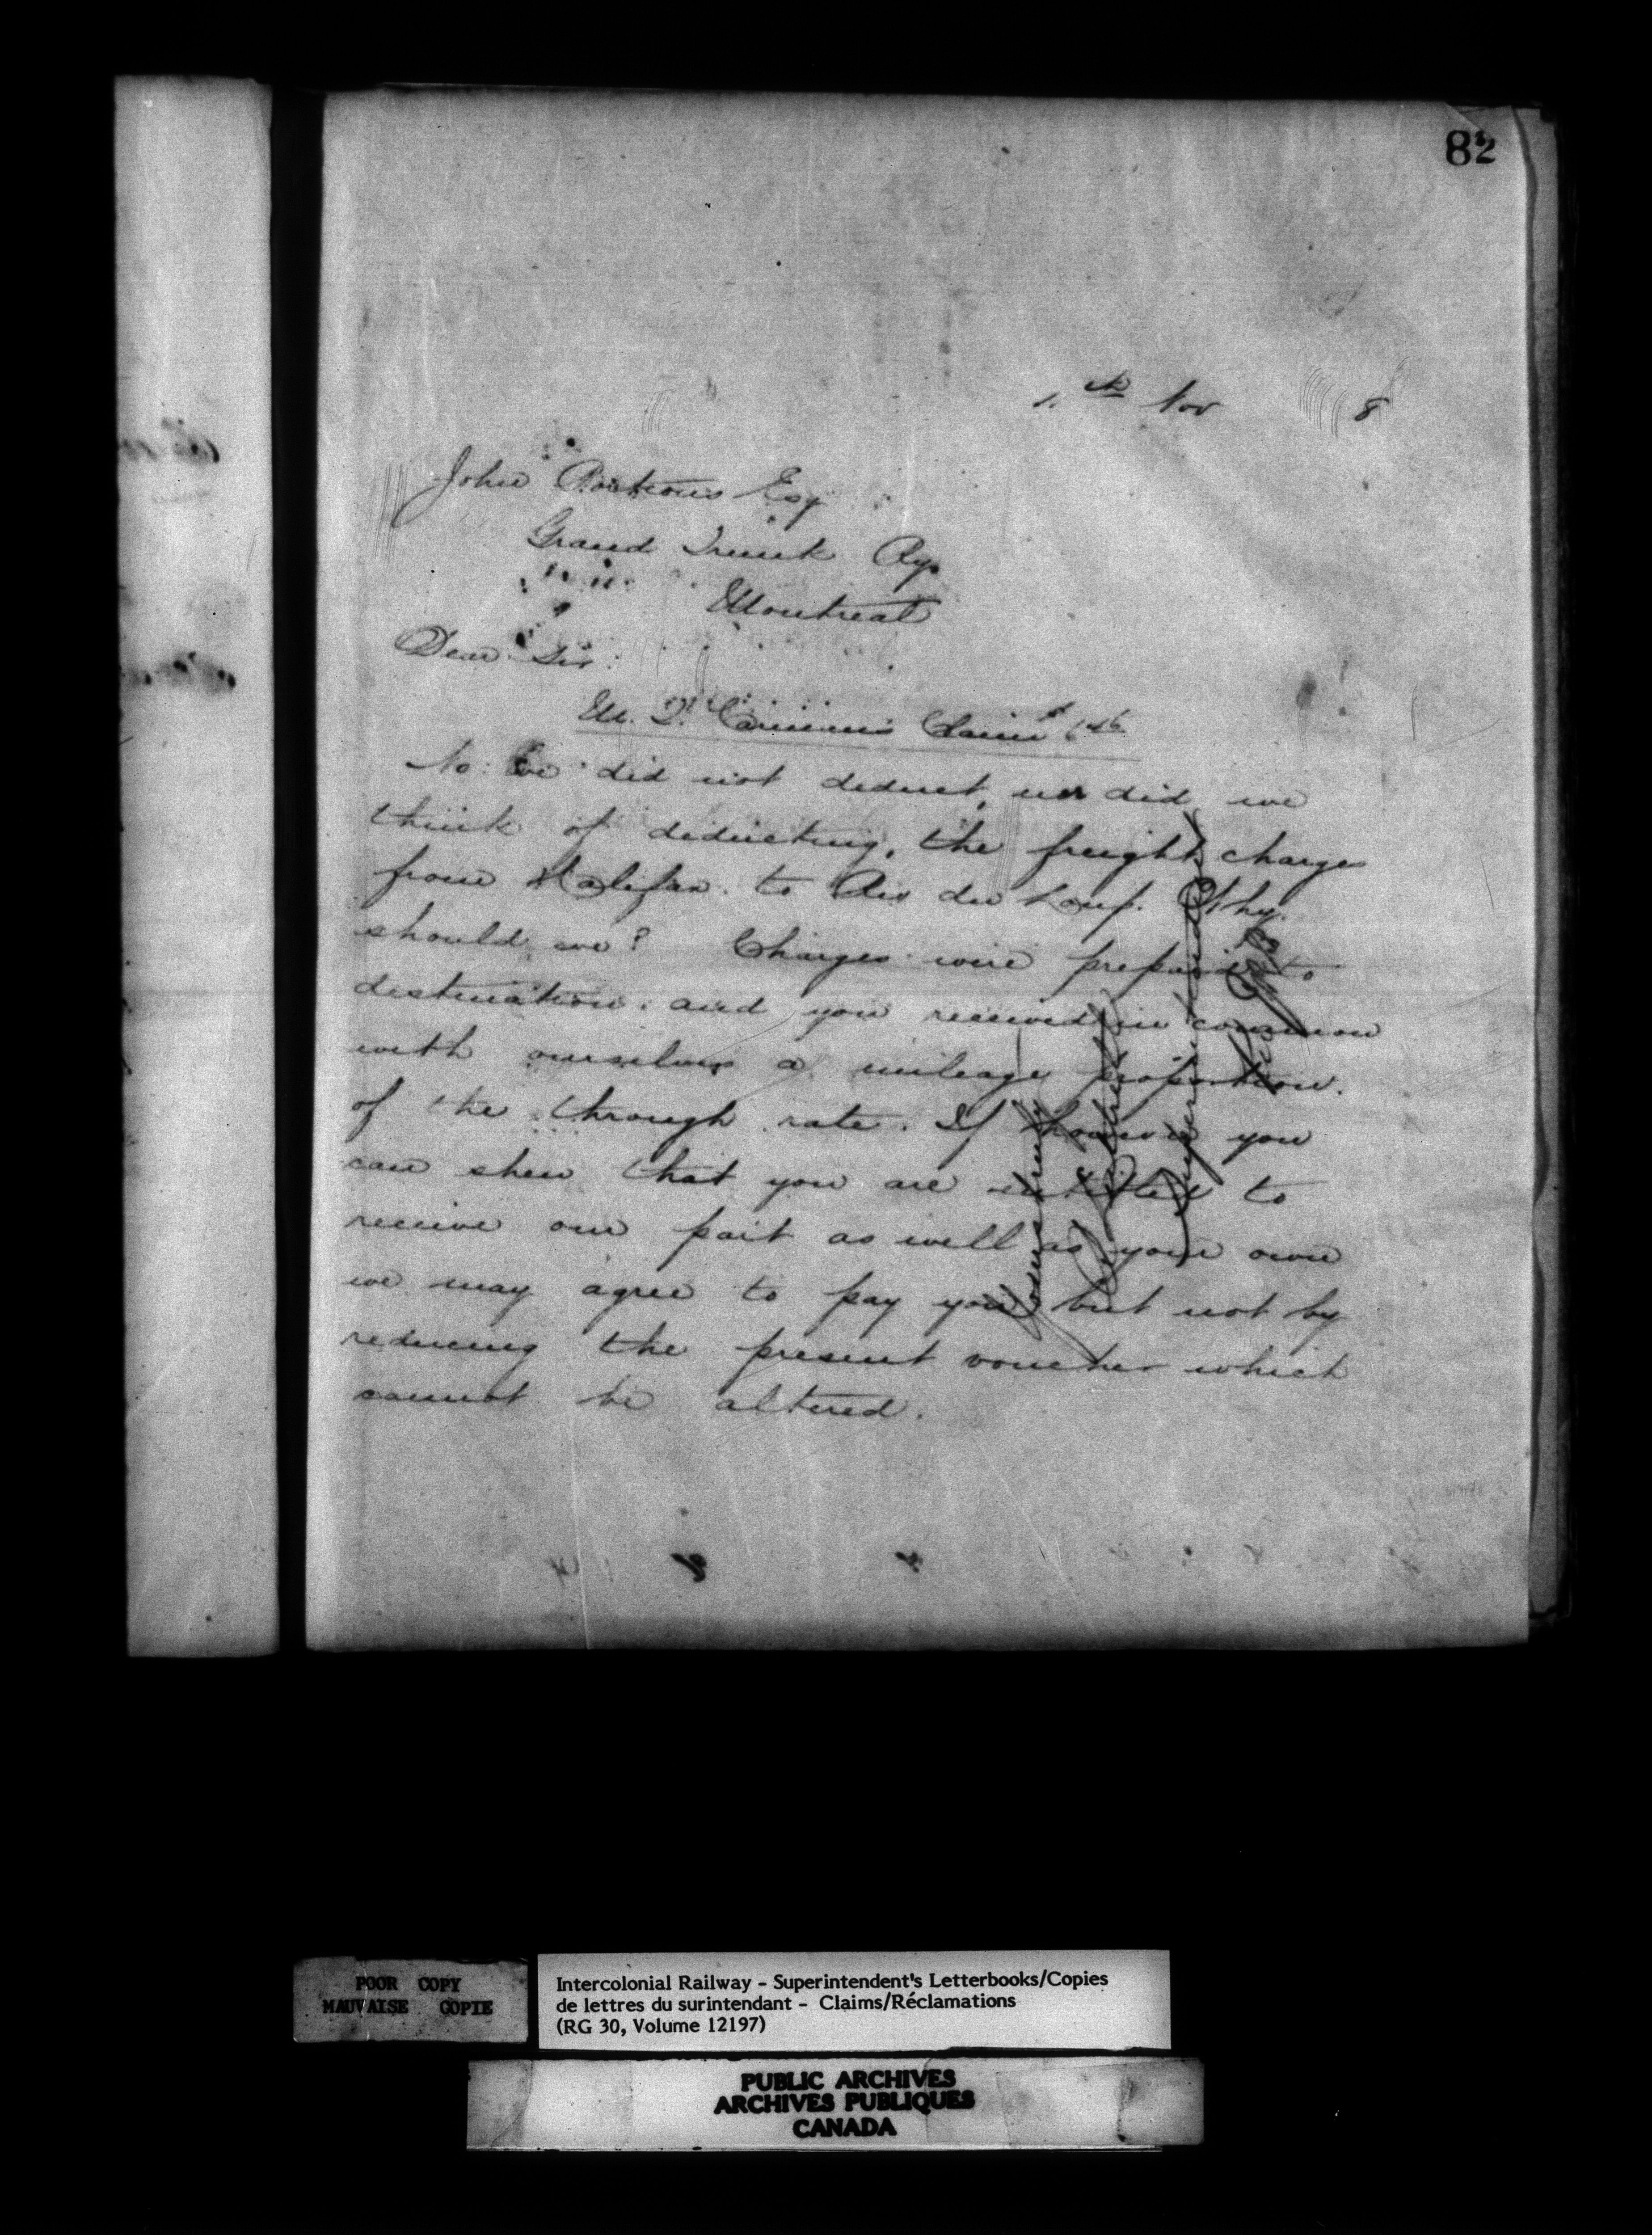 82
1. Nov 8
John Porteous Esq
Grand Trunk Ry.
Montreal
Dear Sir
Claim
No. We did not deduct, nor did we
think of deducting, the freight charges
from Halifax to Riv du Loup. Why
should we? Charges were prepaid to
destination. and you received in common
with ourselves a mileage proportion.
of the through rate. If however you
can shew that you are entitled to
receive our part as well as your own
we may agree to pay you but not by
reducing the present voucher which
cannot be altered.
Yours truly
POOR COPY
MAUVAISE COPIE
Intercolonial Railway - Superintendent's Letterbooks/Copies
de lettres du surintendant - Claims/Réclamations
(RG 30, Volume 12197)
PUBLIC ARCHIVES
ARCHIVES PUBLIQUES
CANADA